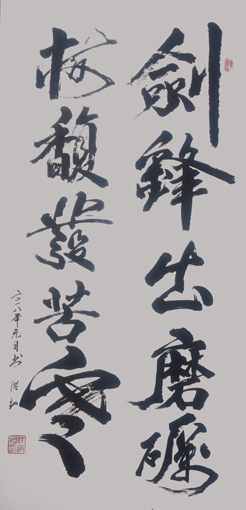 劍鋒出磨礪
梅馥發苦寒
二〇一八年元月書